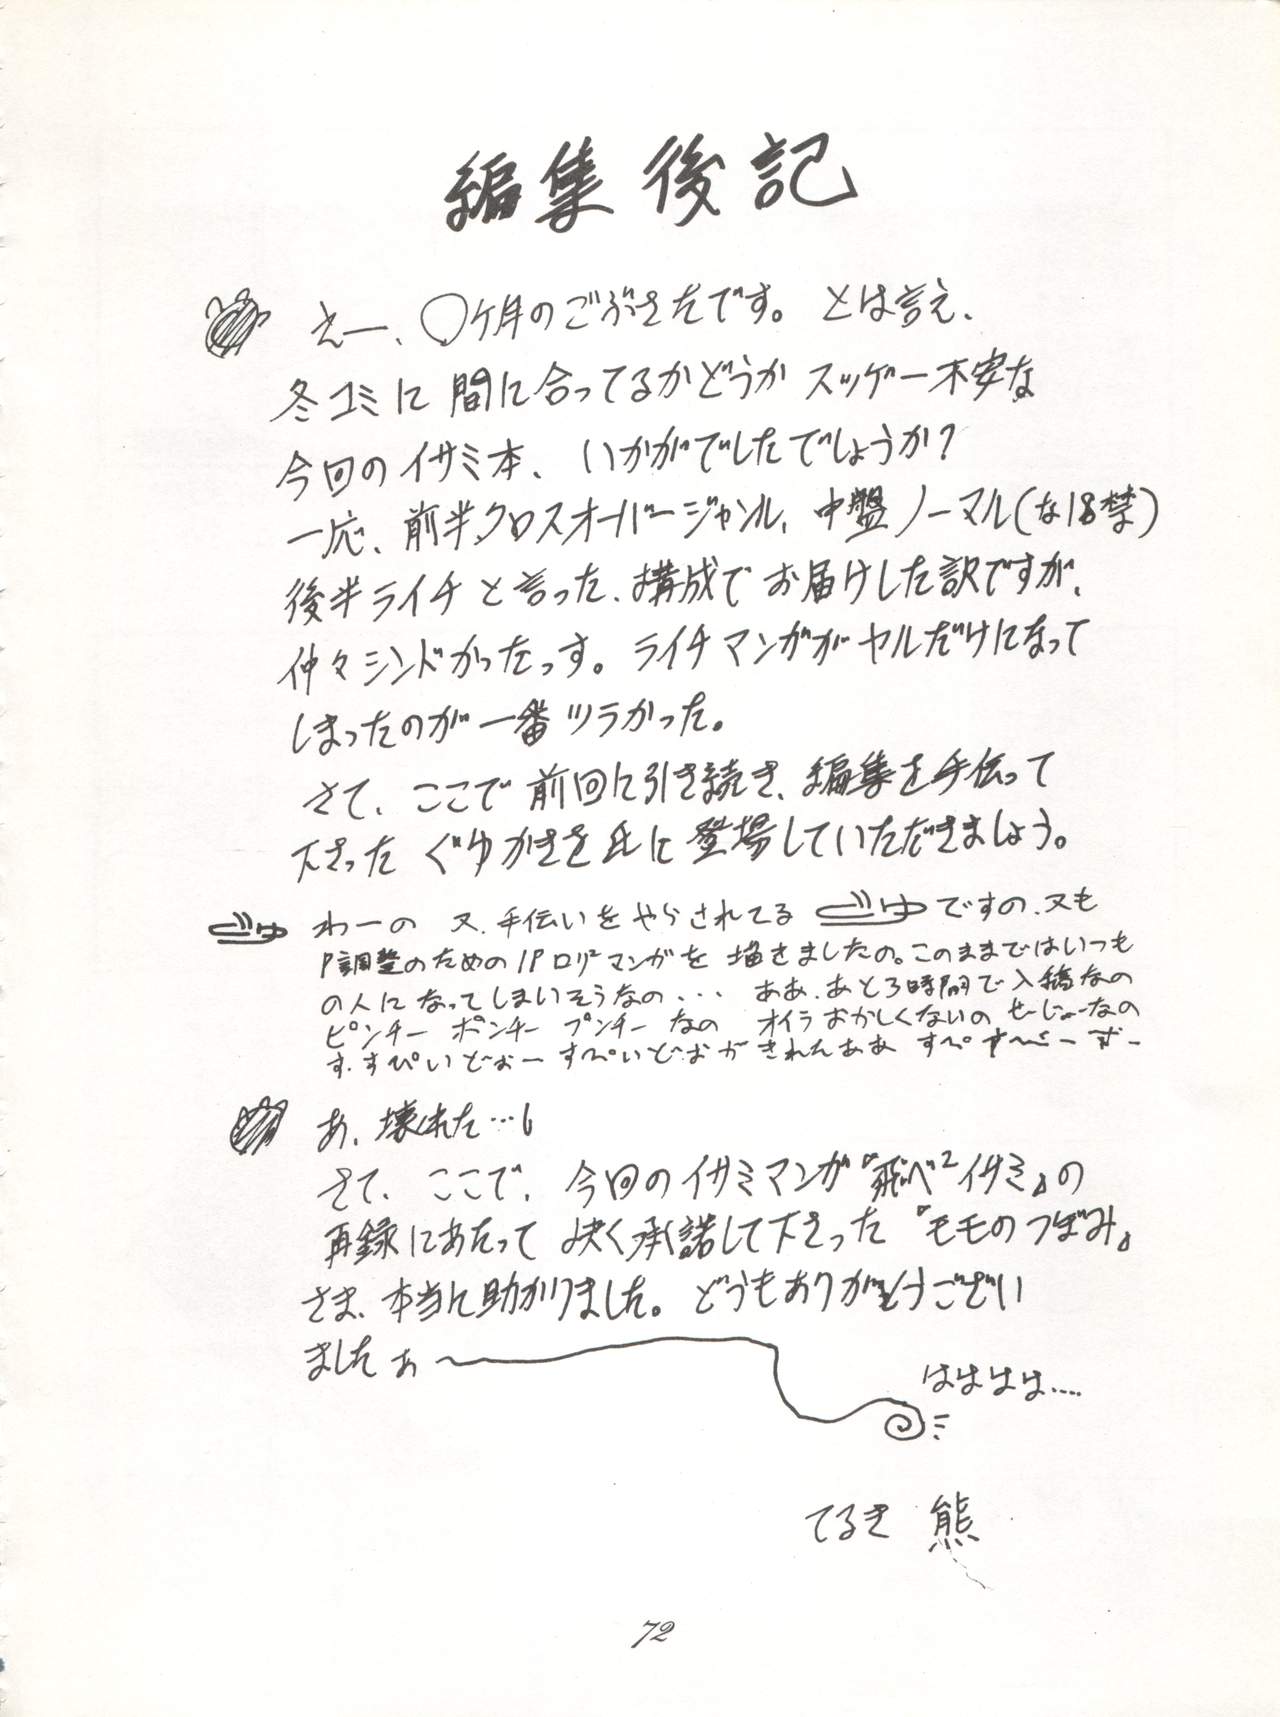 編集後記
えー、〇ヶ月のごぶさたです。とは言え、
冬コミに間に合ってるかどうかスッゲー不安な
今回のイサミ本、いかがでしたでしょうか？
一応、前半クロスオーバージャンル、中盤ノーマル(な18禁)
後半ライチと言った、構成でお届けした訳ですが、
仲々シンドかったっす。ライチマンガがヤルだけになって
しまったのが一番ツラかった。
さて、ここで前回に引き続き、編集を手伝って
下さったぐゆかきを氏に登場していただきましょう。
わーの 又、手伝いをやらされてる ぐゆ ですの、又も
P調整のための1Pロリマンガを描きましたの。このままではいつも
の人になってしまいそうなの・・・ ああ、あと3時間で入稿なの
ピンチー ポンチー プンチー なの オイラおかしくないの せーじょーなの
す、すぴいどぉー すぺいどおがきれたああ すぺ
あ、壊れた…
さて、ここで、今回のイサミマンガ『飛べ2イサミ』の
再録にあたって快く承諾して下さった『モモのつぼみ』
さま、本当に助かりました。どうもありがとうござい
ましたぁ〜
はははは….
てるき熊
72